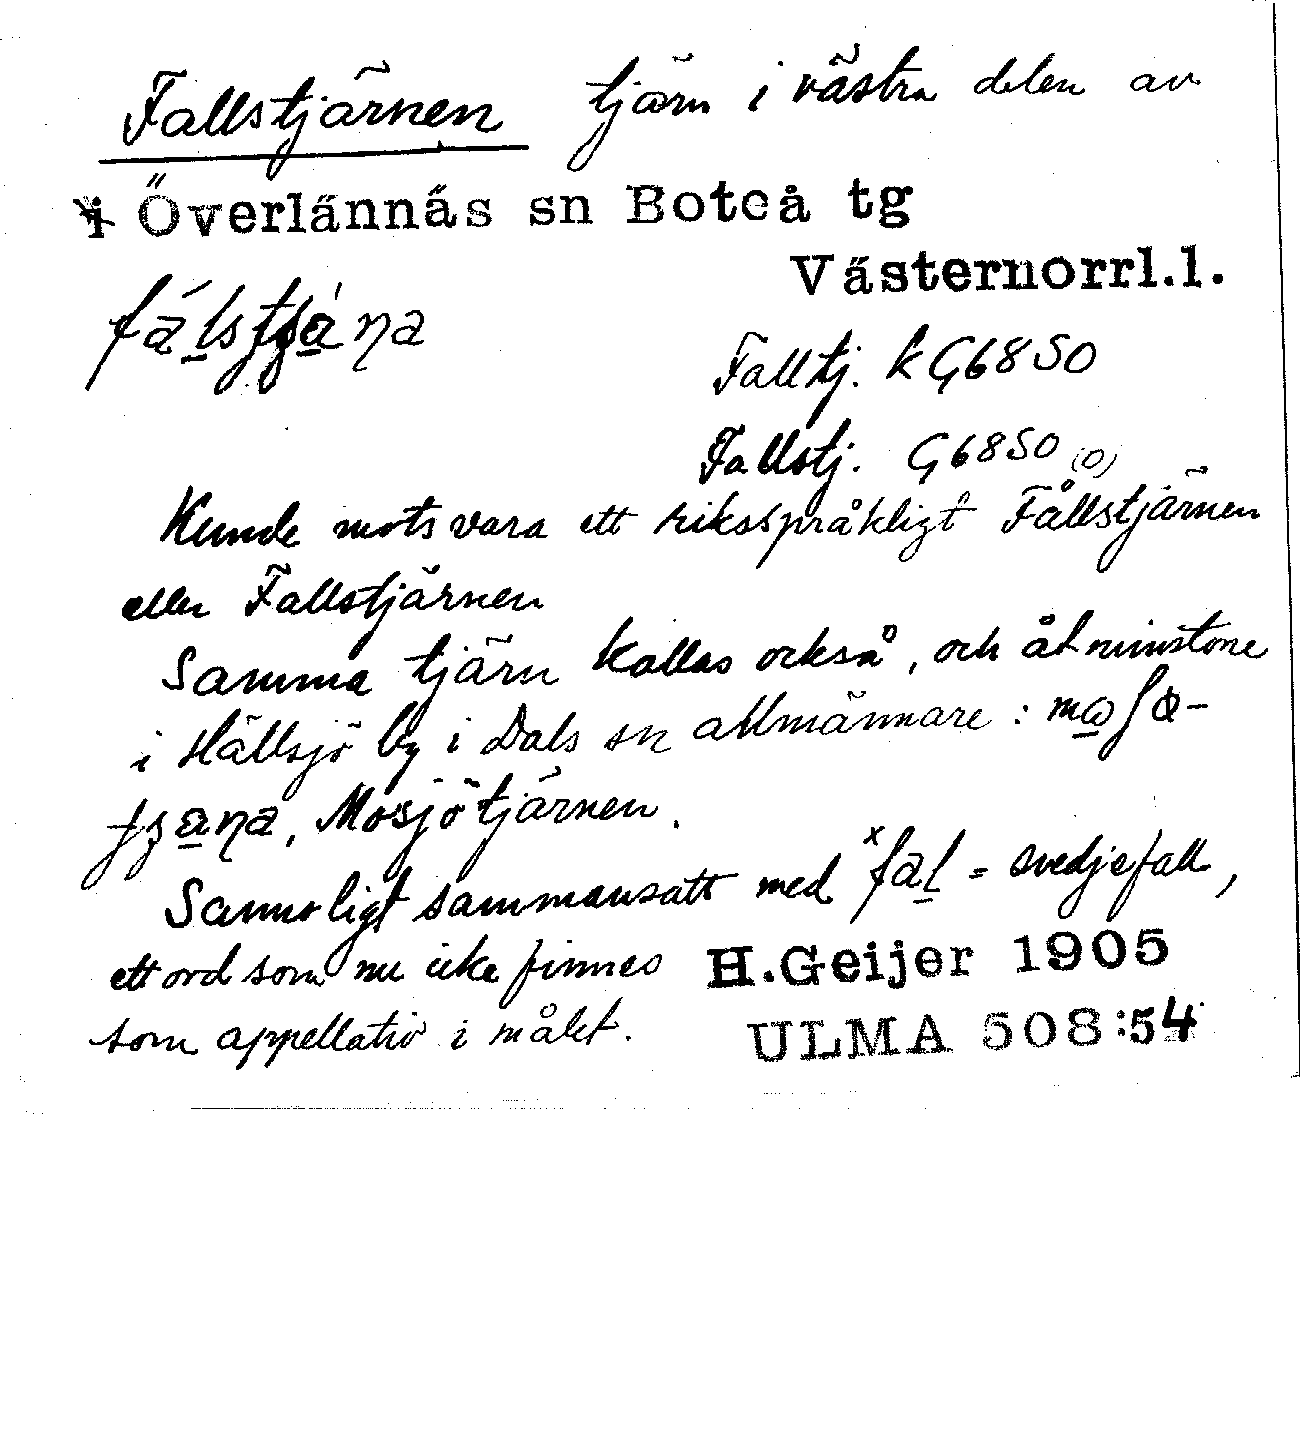 Fallstjärnen tjärn i västra delen av
i Överlännäs sn Boteå tg
Västernorrl.l.
Falltj. k G6850
Fallstj. G6850 (0)
Kunde motsvara ett riksspråkligt Fållstjärnen
eller Fallstjärnen
Samma tjärn kallas också, och åtminstone
i Hällsjö by i Dals sn allmännare :
Mosjötjärnen.
Sannoligt sammansatt med = svedjefall,
ett ord som nu icke finnes
H.Geijer 1905
som appellativ i målet.
ULMA 508:54